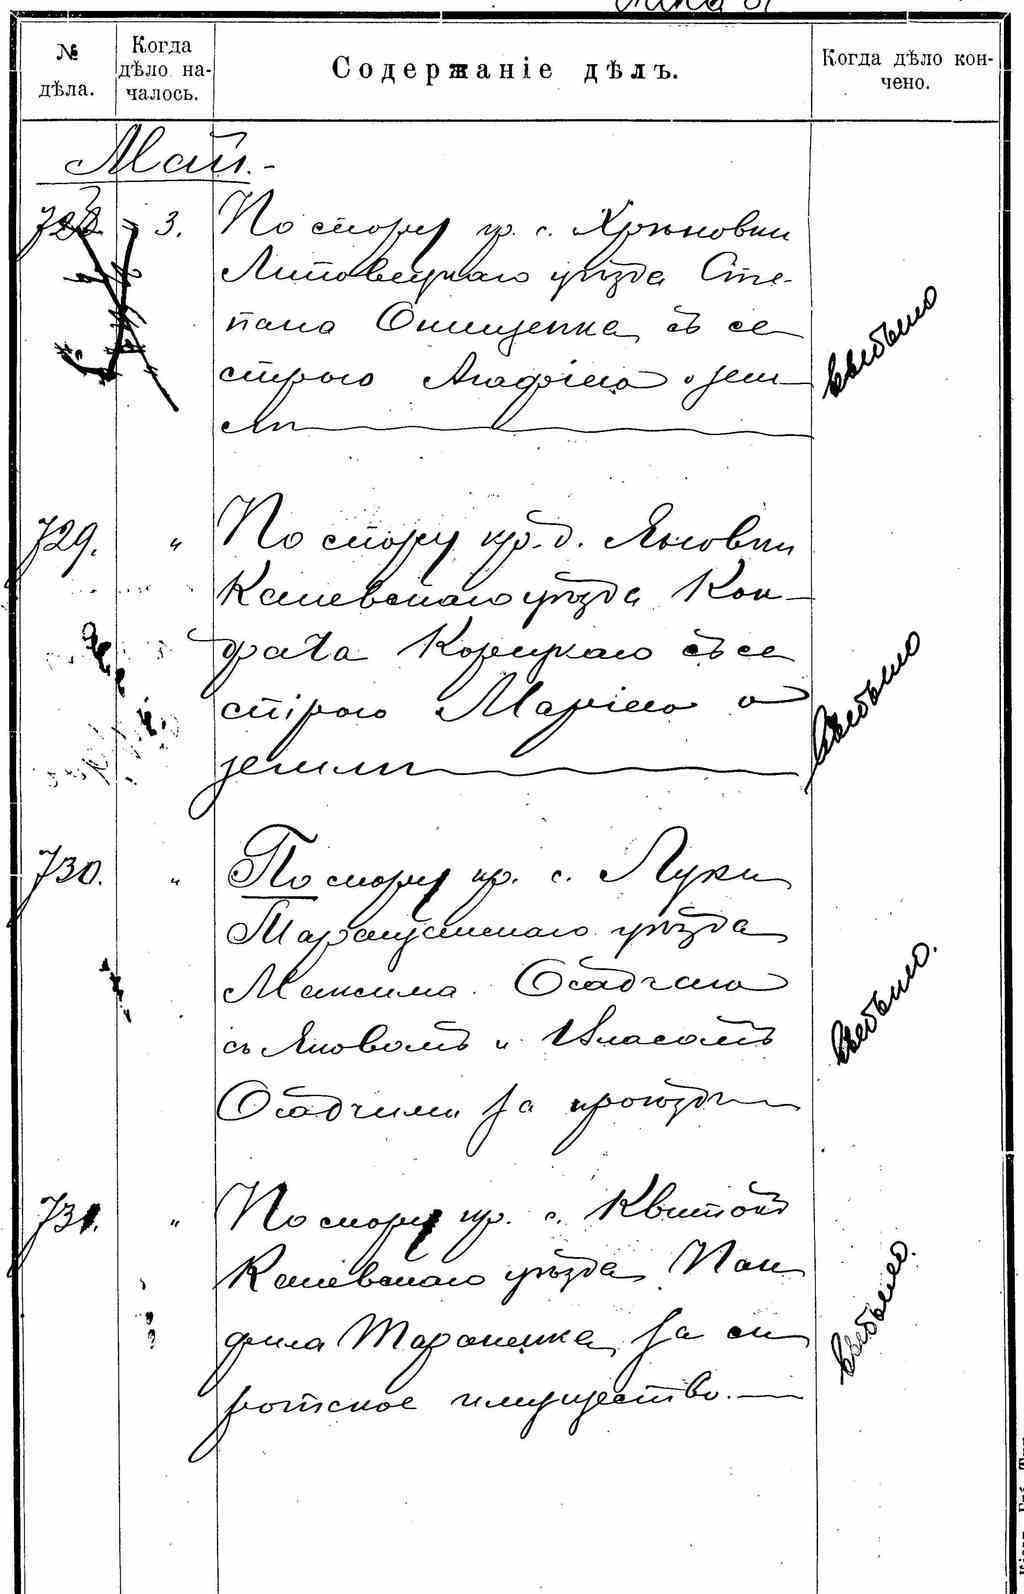 № дѣла.
Когда дѣло на-
чалось.
Содержаніе дѣлъ.
Когда дѣло кон-
чено.
Май.-
728 3. По спору кр. с. Хрѣновки
Липовецкаго уѣзда Сте-
пана Онищенка съ се
строю Агафіею о зем-
лѣ
выбыло
729. " По спору кр. д. Яновки
Каневскаго уѣзда Кон-
драта Корецкаго съ се
строю Маріею о
землѣ
выбыло
730. " По спору кр. с. Луки
Таращанскаго уѣзда
Максима Осадчаго
съ Яковомъ и Власомъ
Осадчими за
выбыло.
731. " По спору кр. с. Квитокъ
Каневскаго уѣзда Пан
фила Тараненка за си
ротское имущество.-
выбыло.